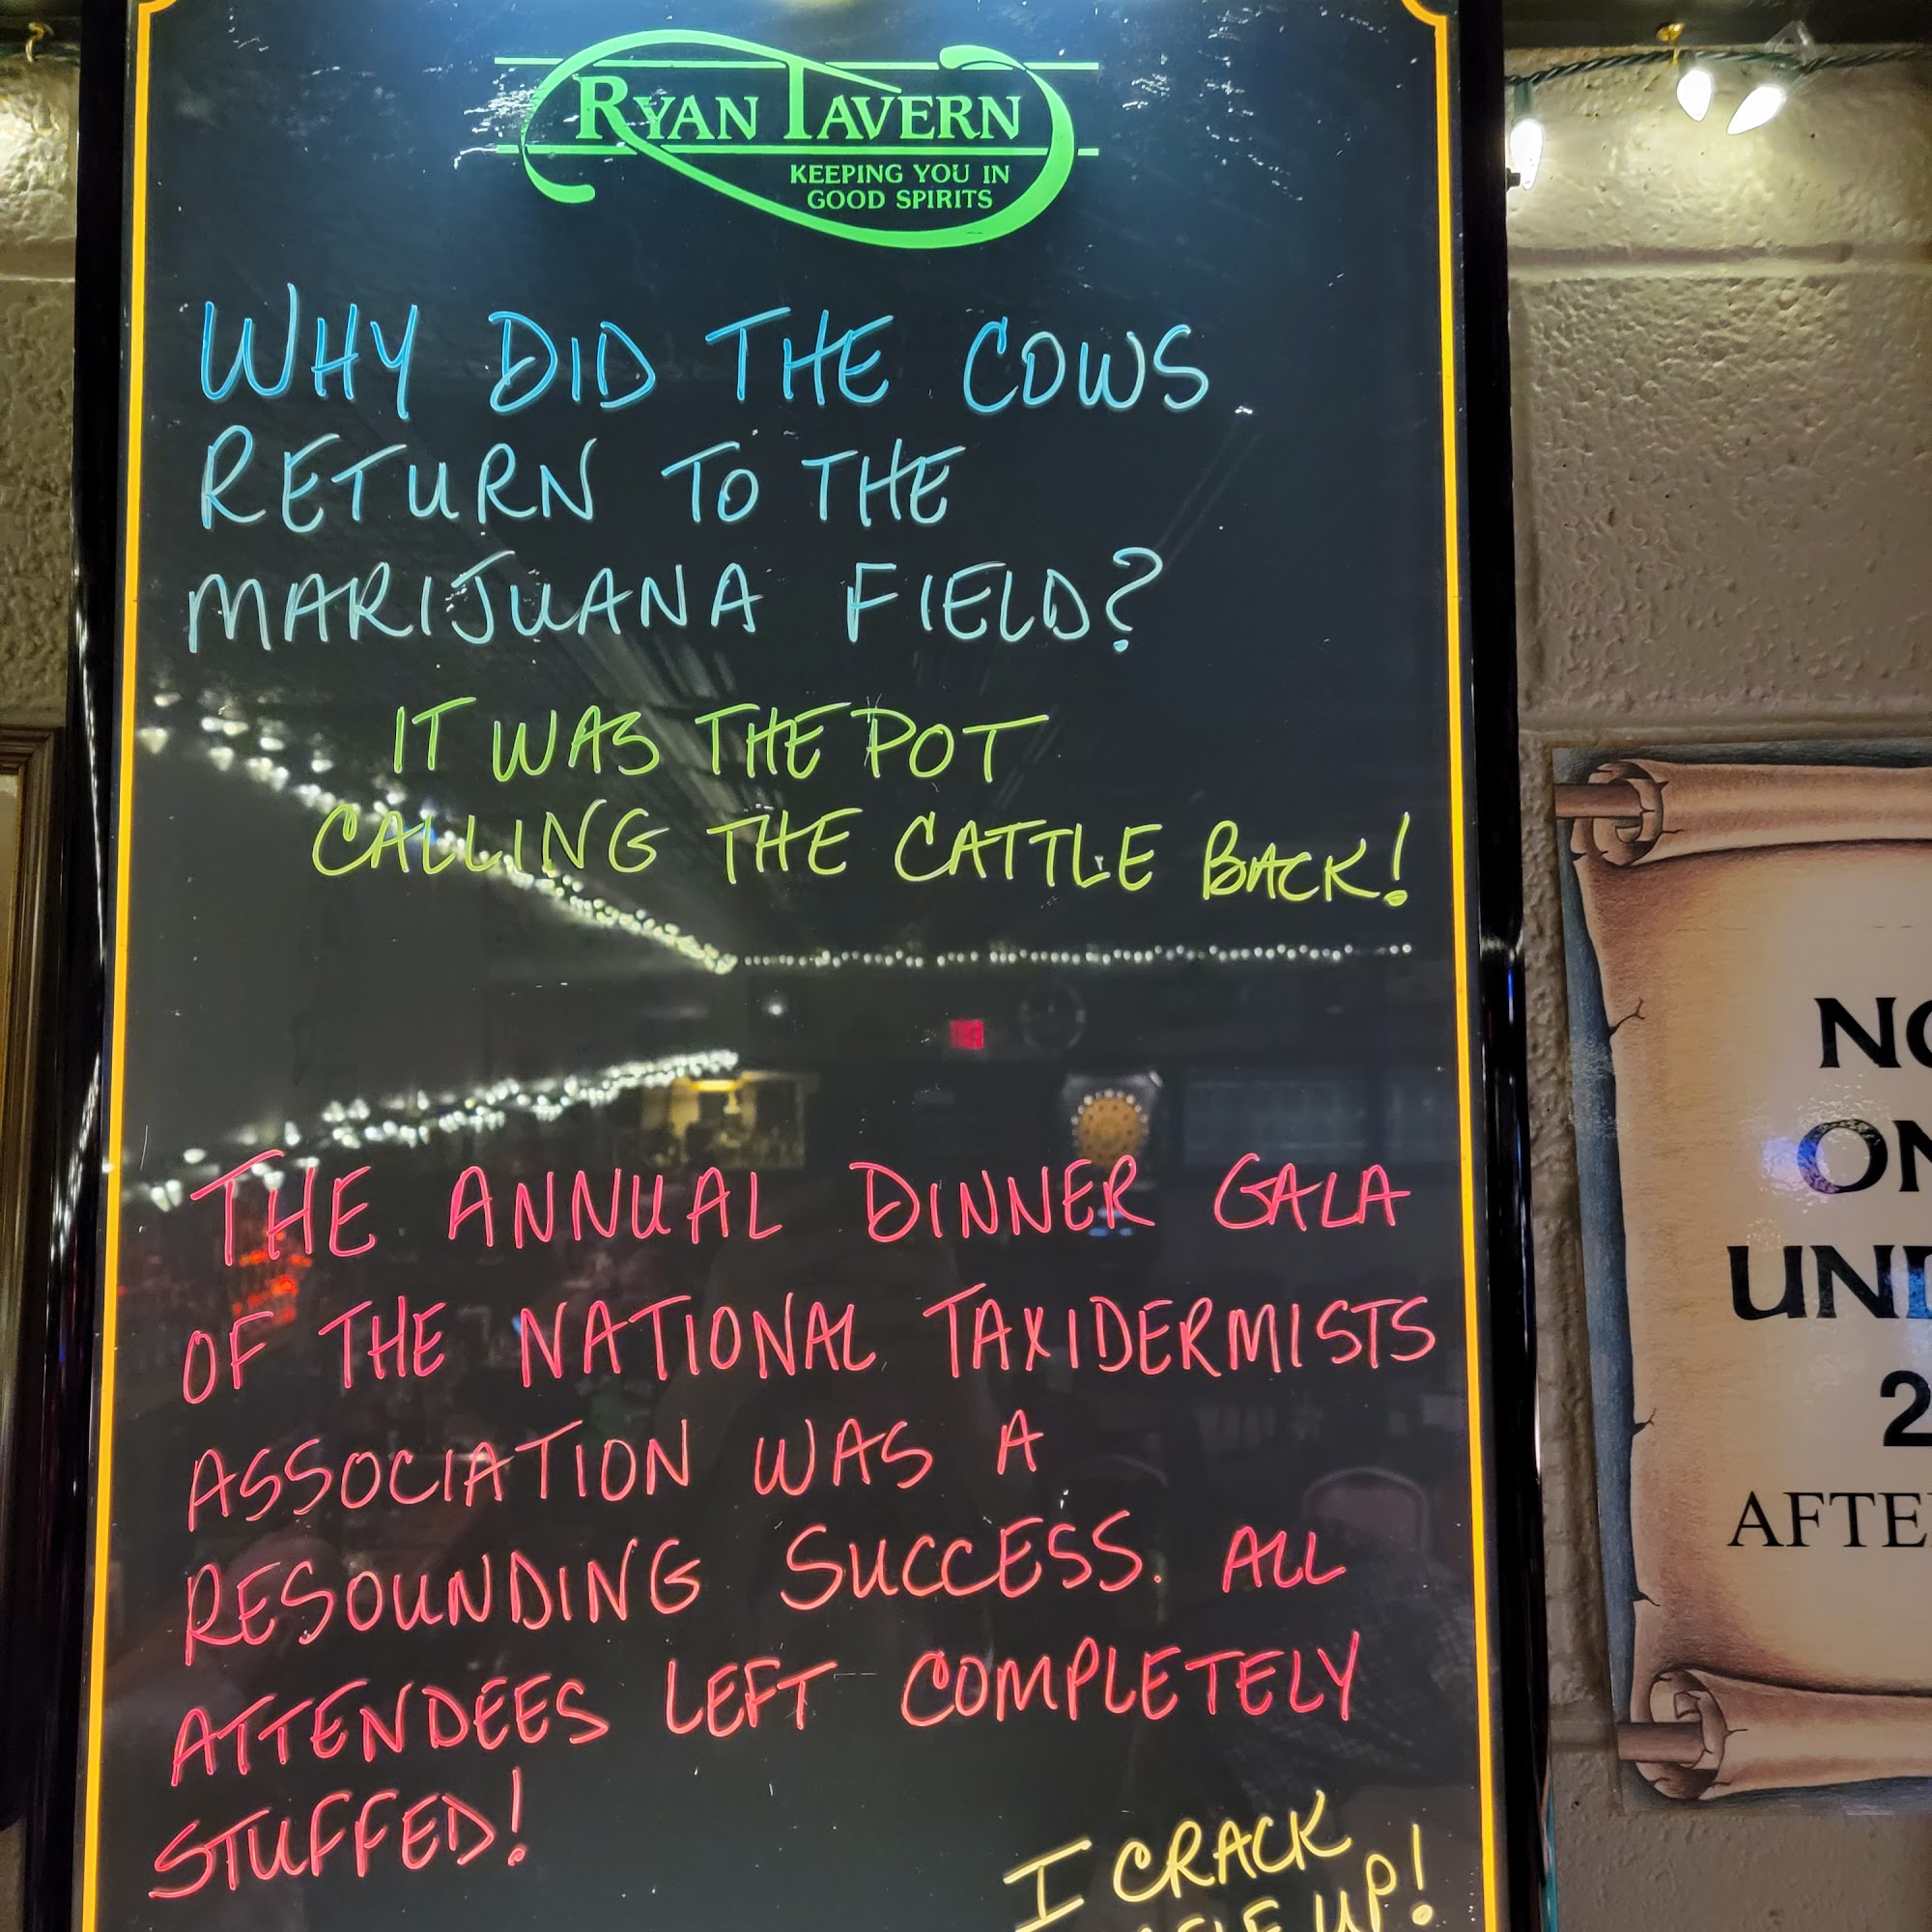 RYAN TAVERN
KEEPING YOU IN
GOOD SPIRITS
WHY DID THE COWS
RETURN TO THE
MARIJUANA FIELD?
IT WAS THE POT
CALLING THE CATTLE BACK!
THE ANNUAL DINNER GALA
OF THE NATIONAL TAXIDERMISTS
ASSOCIATION WAS A
RESOUNDING SUCCESS. ALL
ATTENDEES LEFT COMPLETELY
STUFFED!
I CRACK
UP!
2